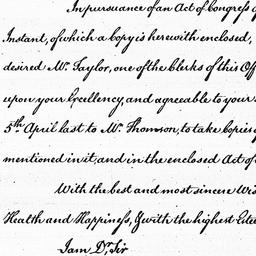 In pursuance of an Act of Congress of
Instant, of which a copy is herewith enclosed,
desired Mr. Taylor, one of the Clerks of this Off
upon your Excellency, and agreeable to your
5th April last to Mr. Thomson, to take copies
mentioned in it, and in the enclosed Act of
With the best and most sincere Wis
Health and Happiness, & with the highest Este
I am Dr. Sir